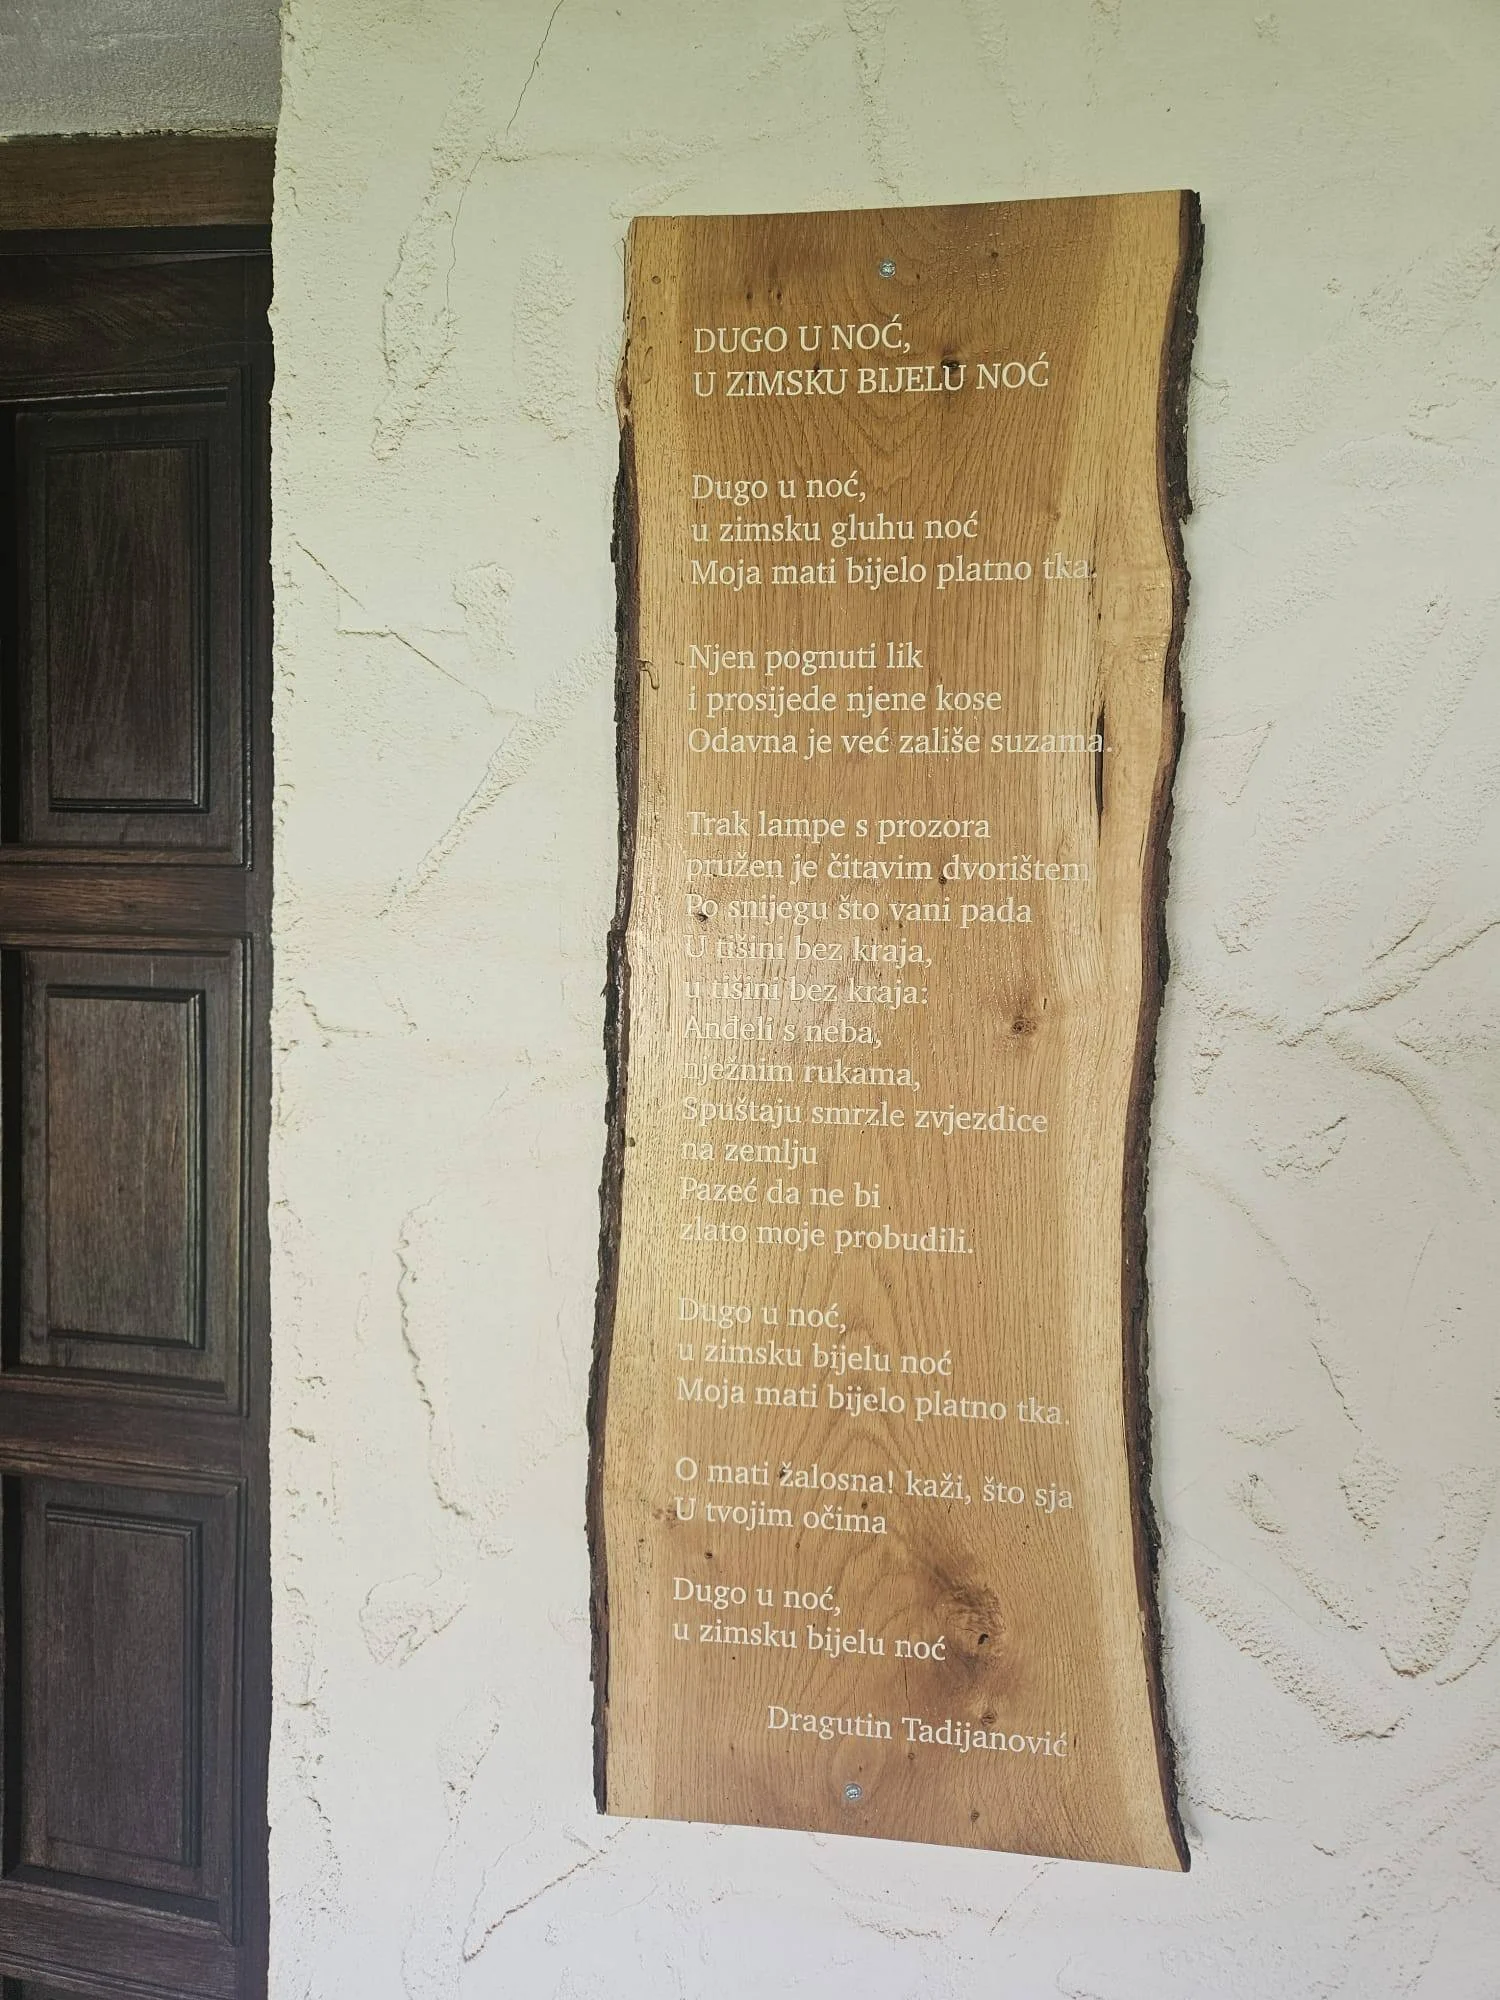 DUGO U NOĆ,
U ZIMSKU BIJELU NOĆ
Dugo u noć,
u zimsku gluhu noć
Moja mati bijelo platno tka.
Njen pognuti lik
i prosijede njene kose
Odavna je već zališe suzama.
Trak lampe s prozora
pružen je čitavim dvorištem
Po snijegu što vani pada
U tišini bez kraja,
u tišini bez kraja:
Anđeli s neba,
nježnim rukama,
Spuštaju smrzle zvjezdice
na zemlju
Pazeć da ne bi
zlato moje probudili.
Dugo u noć,
u zimsku bijelu noć
Moja mati bijelo platno tka.
O mati žalosna! kaži, što sja
U tvojim očima
Dugo u noć,
u zimsku bijelu noć
Dragutin Tadijanović